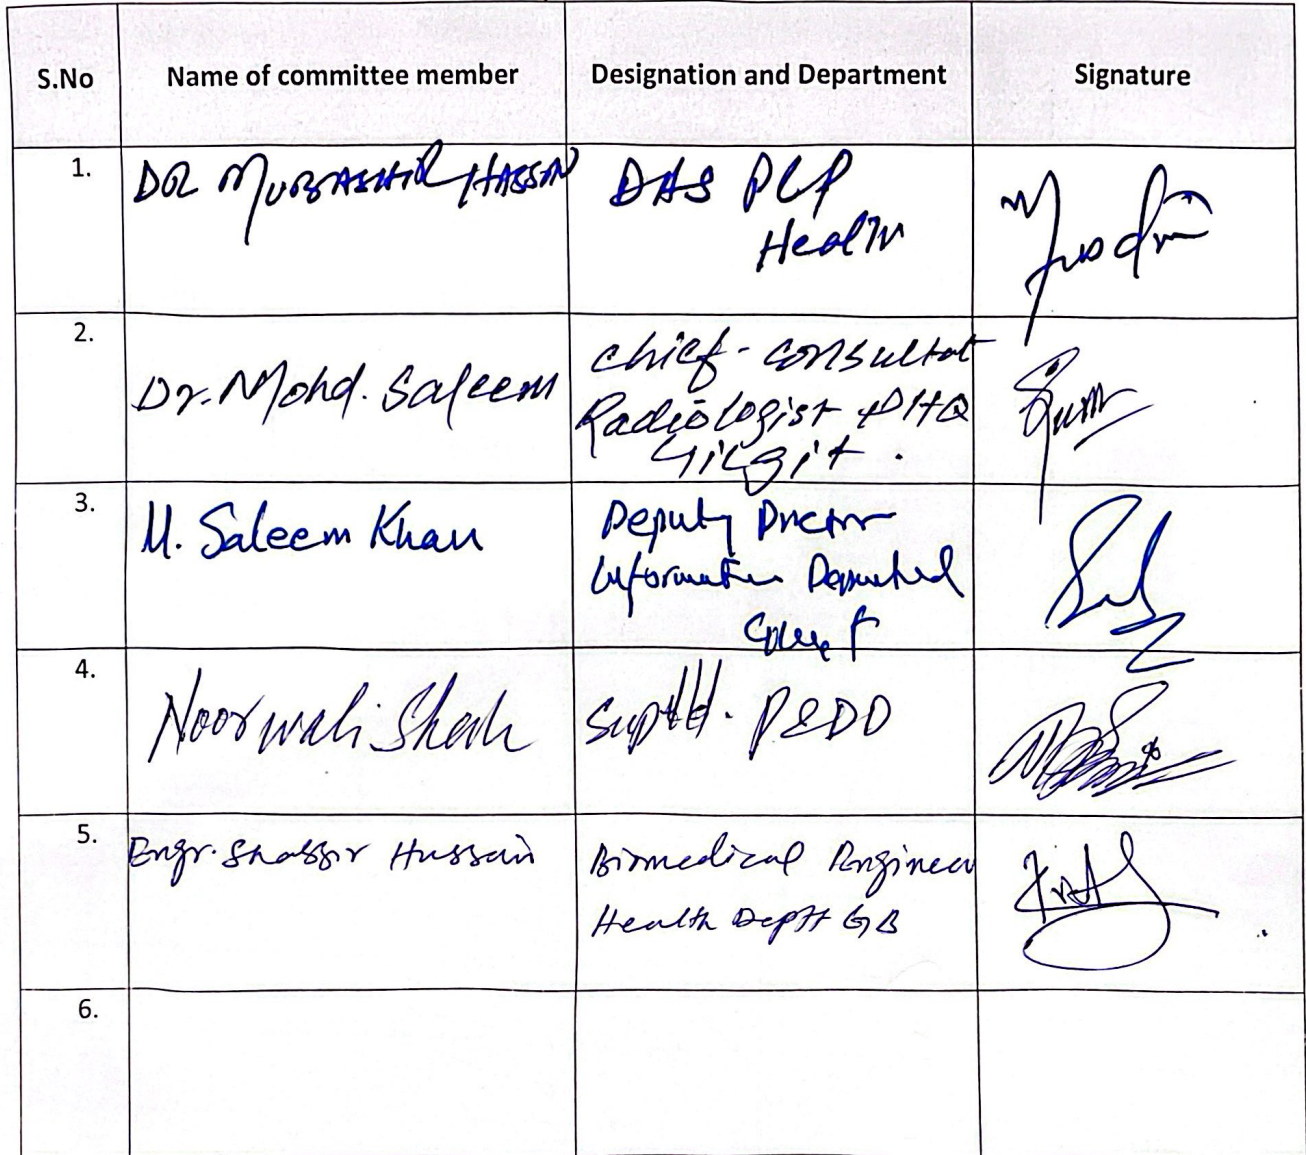 S.No Name of committee member Designation and Department Signature
1. DR MUBASHIR HASSAN DHS PCP
Health
2. Dr. Mohd. Saleem chief - consultat
Radiologist PHQ
Gilgit .
3. M. Saleem Khan Deputy Director
Information Department
4. Noor wali Shah Suptdt. P&DD
5. Engr. Shabbir Hussain Biomedical Engineer
Health Deptt GB
6.